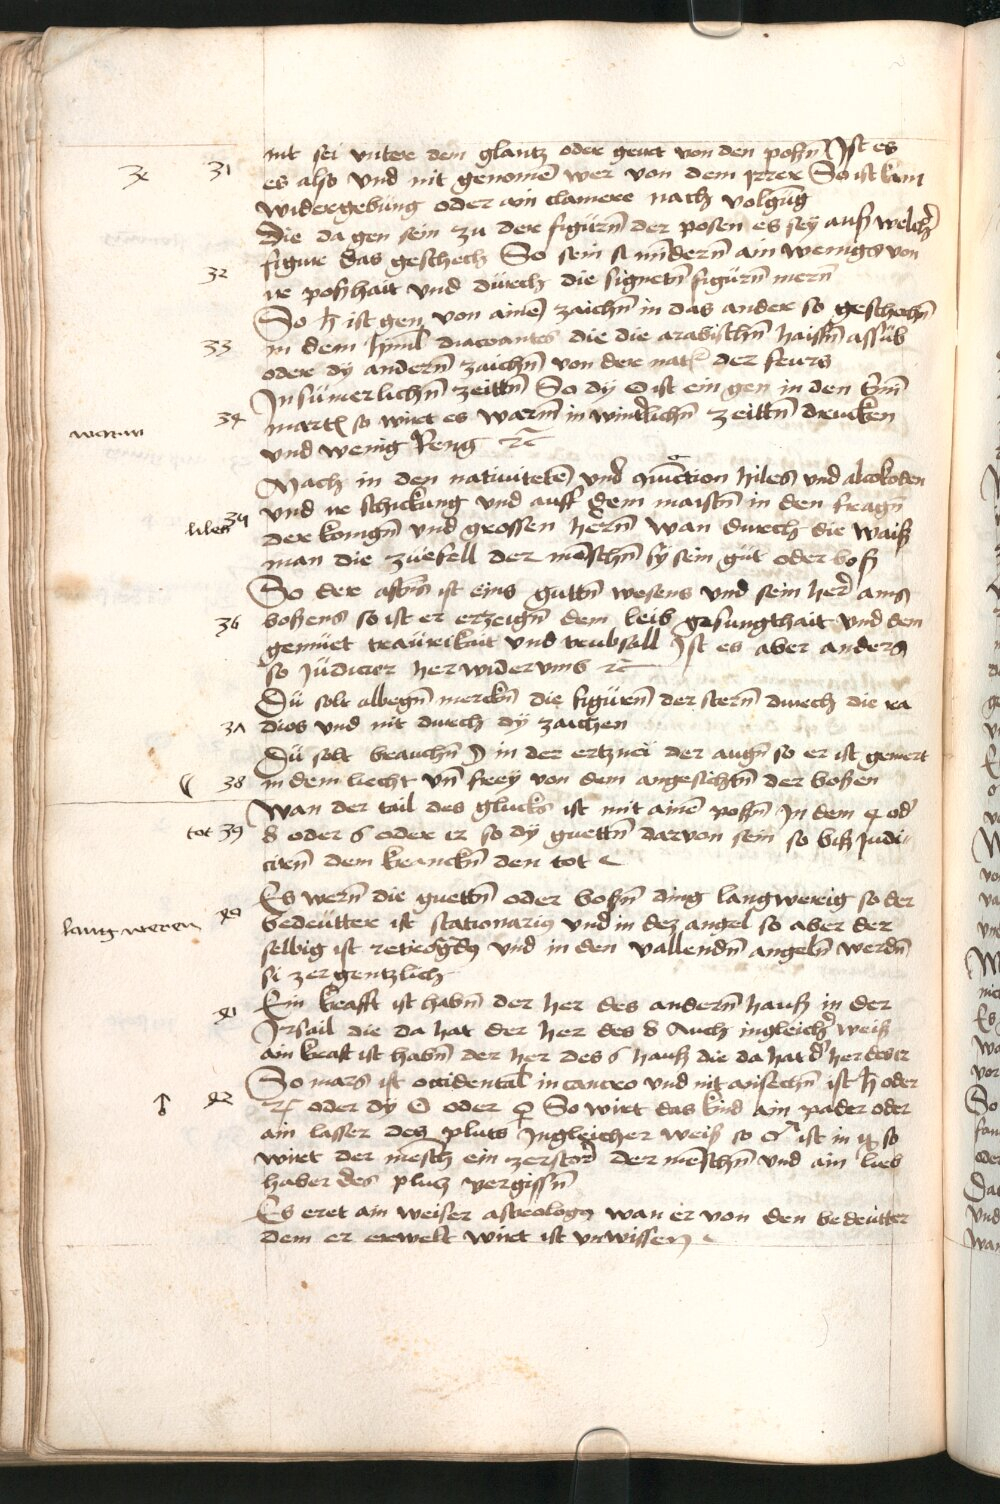 nit sei vnter dem glantz oder geirt von den poßn Ist es
31 es also vnd nit genomē wer von dem irrer So ist kain
widergebung oder ain clamere nach volgūg
Die da gen sein zu der figürn̄ der posen es sey auß welich̄
figure das geschech So sein si mīdern̄ ain wenigs von
32 ir poßhait vnd dürch die signetn̄ figürn̄ mern̄
So ♄ ist gen von ainē zaichn̄ in das ander so geschechn̄
33 in dem himl die die arabischn̄ haisn̄ assüb
oder dy andern̄ zaichn̄ von der natr̄ der feurs
In sümerlichn̄ zeittn̄ So dy ☉ ist ein gen in den
34 martis so wirt es warm̄ in wintterlichn̄ zeittn̄ drucken
warm
vnd wenig Reng ⁊c
Nach in den nativitetē vnd hiles vnd alcokoden
vnd ir schickung vnd auff dem maistn̄ in den fragn̄
hiles
der konign̄ vnd grossen hern̄ wan durch die waiß
man die zuefell der mēschn̄ sy sein güt oder boß
So der ist eins guttn̄ wesens vnd sein her ains
36 boßens so ist er erzeign̄ dem leib gesungthait vnd dem
gemüet traürikait vnd trubsall Ist es aber anders
so Judicier herwiderumb ⁊c
Dü solt albegn̄ merckn̄ die figürn̄ der stern̄ durch die ra
37 dios vnd nit durch dy zaichen
Dü solt brauchn̄ ☽ in der ertznei der augn̄ so er ist gemert
38 in dem liecht vn̄ frey von dem angesichtn̄ der boßen
Wan der tail des glucks ist mit ainē poßn̄ In dem 4 od
tot 39 8 oder 6 oder 12 so dy guettn̄ darvon sein so biß Judi-
cirn̄ dem kranckn̄ den tot
Es wern̄ die guettn̄ oder boßn̄ ding langwerig so der
40 bedeütter ist stationarius vnd in dez angel so aber der
lang weren
selbig ist vnd in den vallendn̄ angeln̄ werdn̄
si zergentzlich
Ein krafft ist habn̄ der her des andern̄ hauß in der
41 Irsail die da hat der her des 8 Auch ingleich̄ weiß
ain kraft ist habn̄ der her des 6 hauß die da hat d̄ her des 12
So mars ist occidental in cancro vnd nit ansechn̄ ist ♄ oder
42 ♃ oder dy ☉ oder ♀ So wirt das kind ain pader oder
ain lasser des pluts Ingleicher weiß so ♂ ist in ♏ so
wirt der mēsch ein zerstörer der mēschn̄ vnd ain lieb
haber des plutz vergissn̄
Es eret ain weiser astrologus wan er von den bedeütter
dem er erwelt wirt ist vnwissen